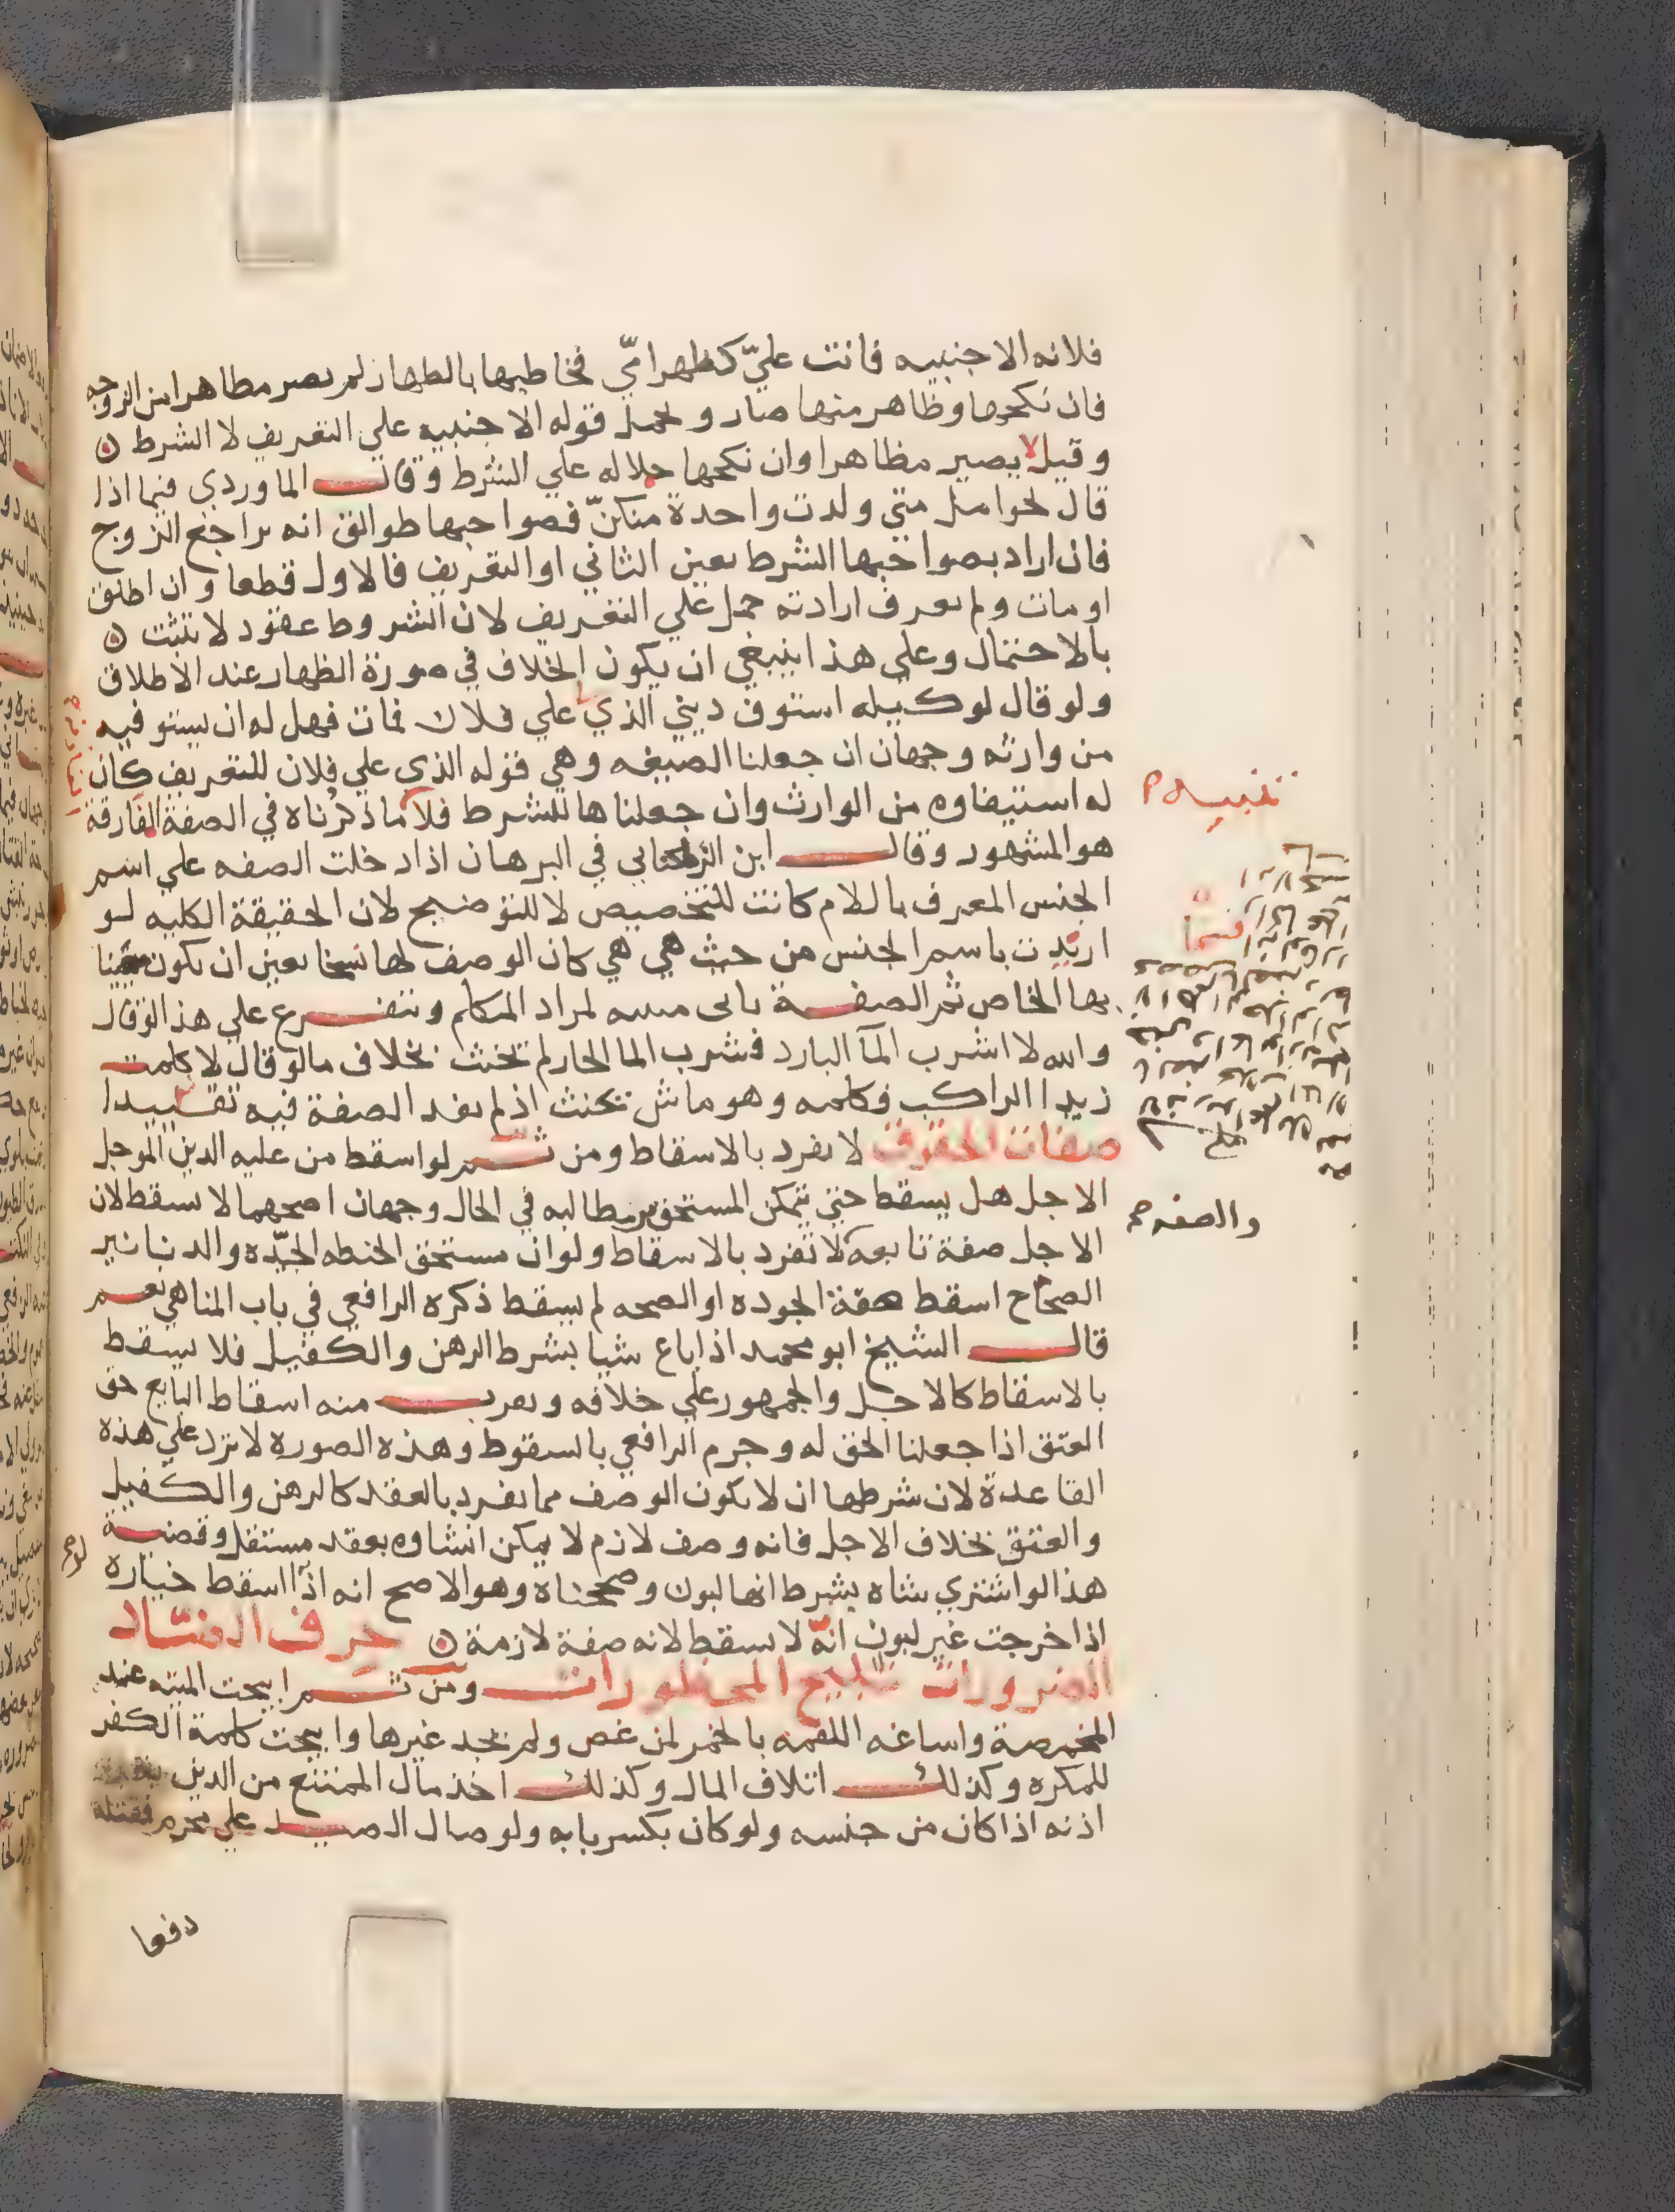 فلانه الاجنبيه فانت عليّ كظهر امّي فخاطبها بالظهار لم يصر مظاهرا من الزوجه
فان نكحها وظاهر منها صار ويحمل قوله الاجنبيه علي التعريف لا الشرط
وقيل لا يصير مظاهرا وان نكحها حملا له علي الشرط وقال الماوردي فيما اذا
قال لحوامل متي ولدت واحدة منكنّ فصواحبها طوالق انه يراجع الزوج
فان اراد بصواحبها الشرط تعين الثاني او التعريف فالاول قطعا وان اطلق
او مات ولم يعرف ارادته حمل علي التعريف لان الشروط عقود لا تثبت
بالاحتمال وعلي هذا ينبغي ان يكون الخلاف في صورة الظهار عند الاطلاق
ولو قال لوكيله استوف ديني الذي علي فلان فمات فهل له ان يستوفيه
من وارثه وجهان ان جعلنا الصيغه وهي قوله الذي علي فلان للتعريف كان
له استيفاوه من الوارث وان جعلناها للشرط فلا ما ذكرناه في الصفة الفارقة
تنبيه
هو المشهور وقال ابن الزملكاني في البرهان اذا دخلت الصفه علي اسم
الجنس المعرف باللام كانت للتخصيص لا للتوضيح لان الحقيقة الكليه لو
اريدت باسم الجنس من حيث هي هي كان الوصف لها نسخا تعين ان يكون معنيا
بها الخاص ثم الصفة تاتي مبينه لمراد المتكلم ويتفرع علي هذا لو قال
والله لا اشرب المآ البارد فشرب الما الحار لم يحنث بخلاف ما لو قال لا كلمت
زيدا الراكب فكلمه وهو ماش يحنث اذ لم تفد الصفة فيه تقييدا
صفات الحقوق لا تفرد بالاسقاط ومن ثم لو اسقط من عليه الدين الموجل
الاجل هل يسقط حتي يتمكن المستحق من مطالبه في الحال وجهان اصحهما لا يسقط لان
الاجل صفة تابعه لا تفرد بالاسقاط ولو ان مستحق الحنطه الجيّده والدنانير
والصفه
الصحاح اسقط صفة الجوده او الصحه لم يسقط ذكره الرافعي في باب المناهي نعم
قال الشيخ ابو محمد اذا باع شيا بشرط الرهن والكفيل فلا يسقط
بالاسقاط كالاجل والجمهور علي خلافه ويقرب منه اسقاط البايع حق
العتق اذا جعلنا الحق له وجزم الرافعي بالسقوط وهذه الصوره لا ترد علي هذه
القاعدة لان شرطها ان لا يكون الوصف مما يفرد بالعقد كالرهن والكفيل
والعتق بخلاف الاجل فانه وصف لازم لا يمكن انشاوه بعقد مستقل وقضية
هذا لو اشتري شاه بشرط انها لبون وصححناه وهو الاصح انه اذا اسقط خياره
اذا خرجت غير لبون انه لا يسقط لانه صفة لازمة حرف الضاد
الضرورات تبيح المحظورات ومن ثم ابيحت الميته عند
المخمصة واساغه اللقمه بالخمر لمن غص ولم يجد غيرها وابيحت كلمة الكفر
للمكره وكذلك اتلاف المال وكذلك اخذ مال الممتنع من الدين بغير
اذنه اذا كان من جنسه ولو كان بكسر بابه ولو صال الصيد علي محرم فقتله
دفعا